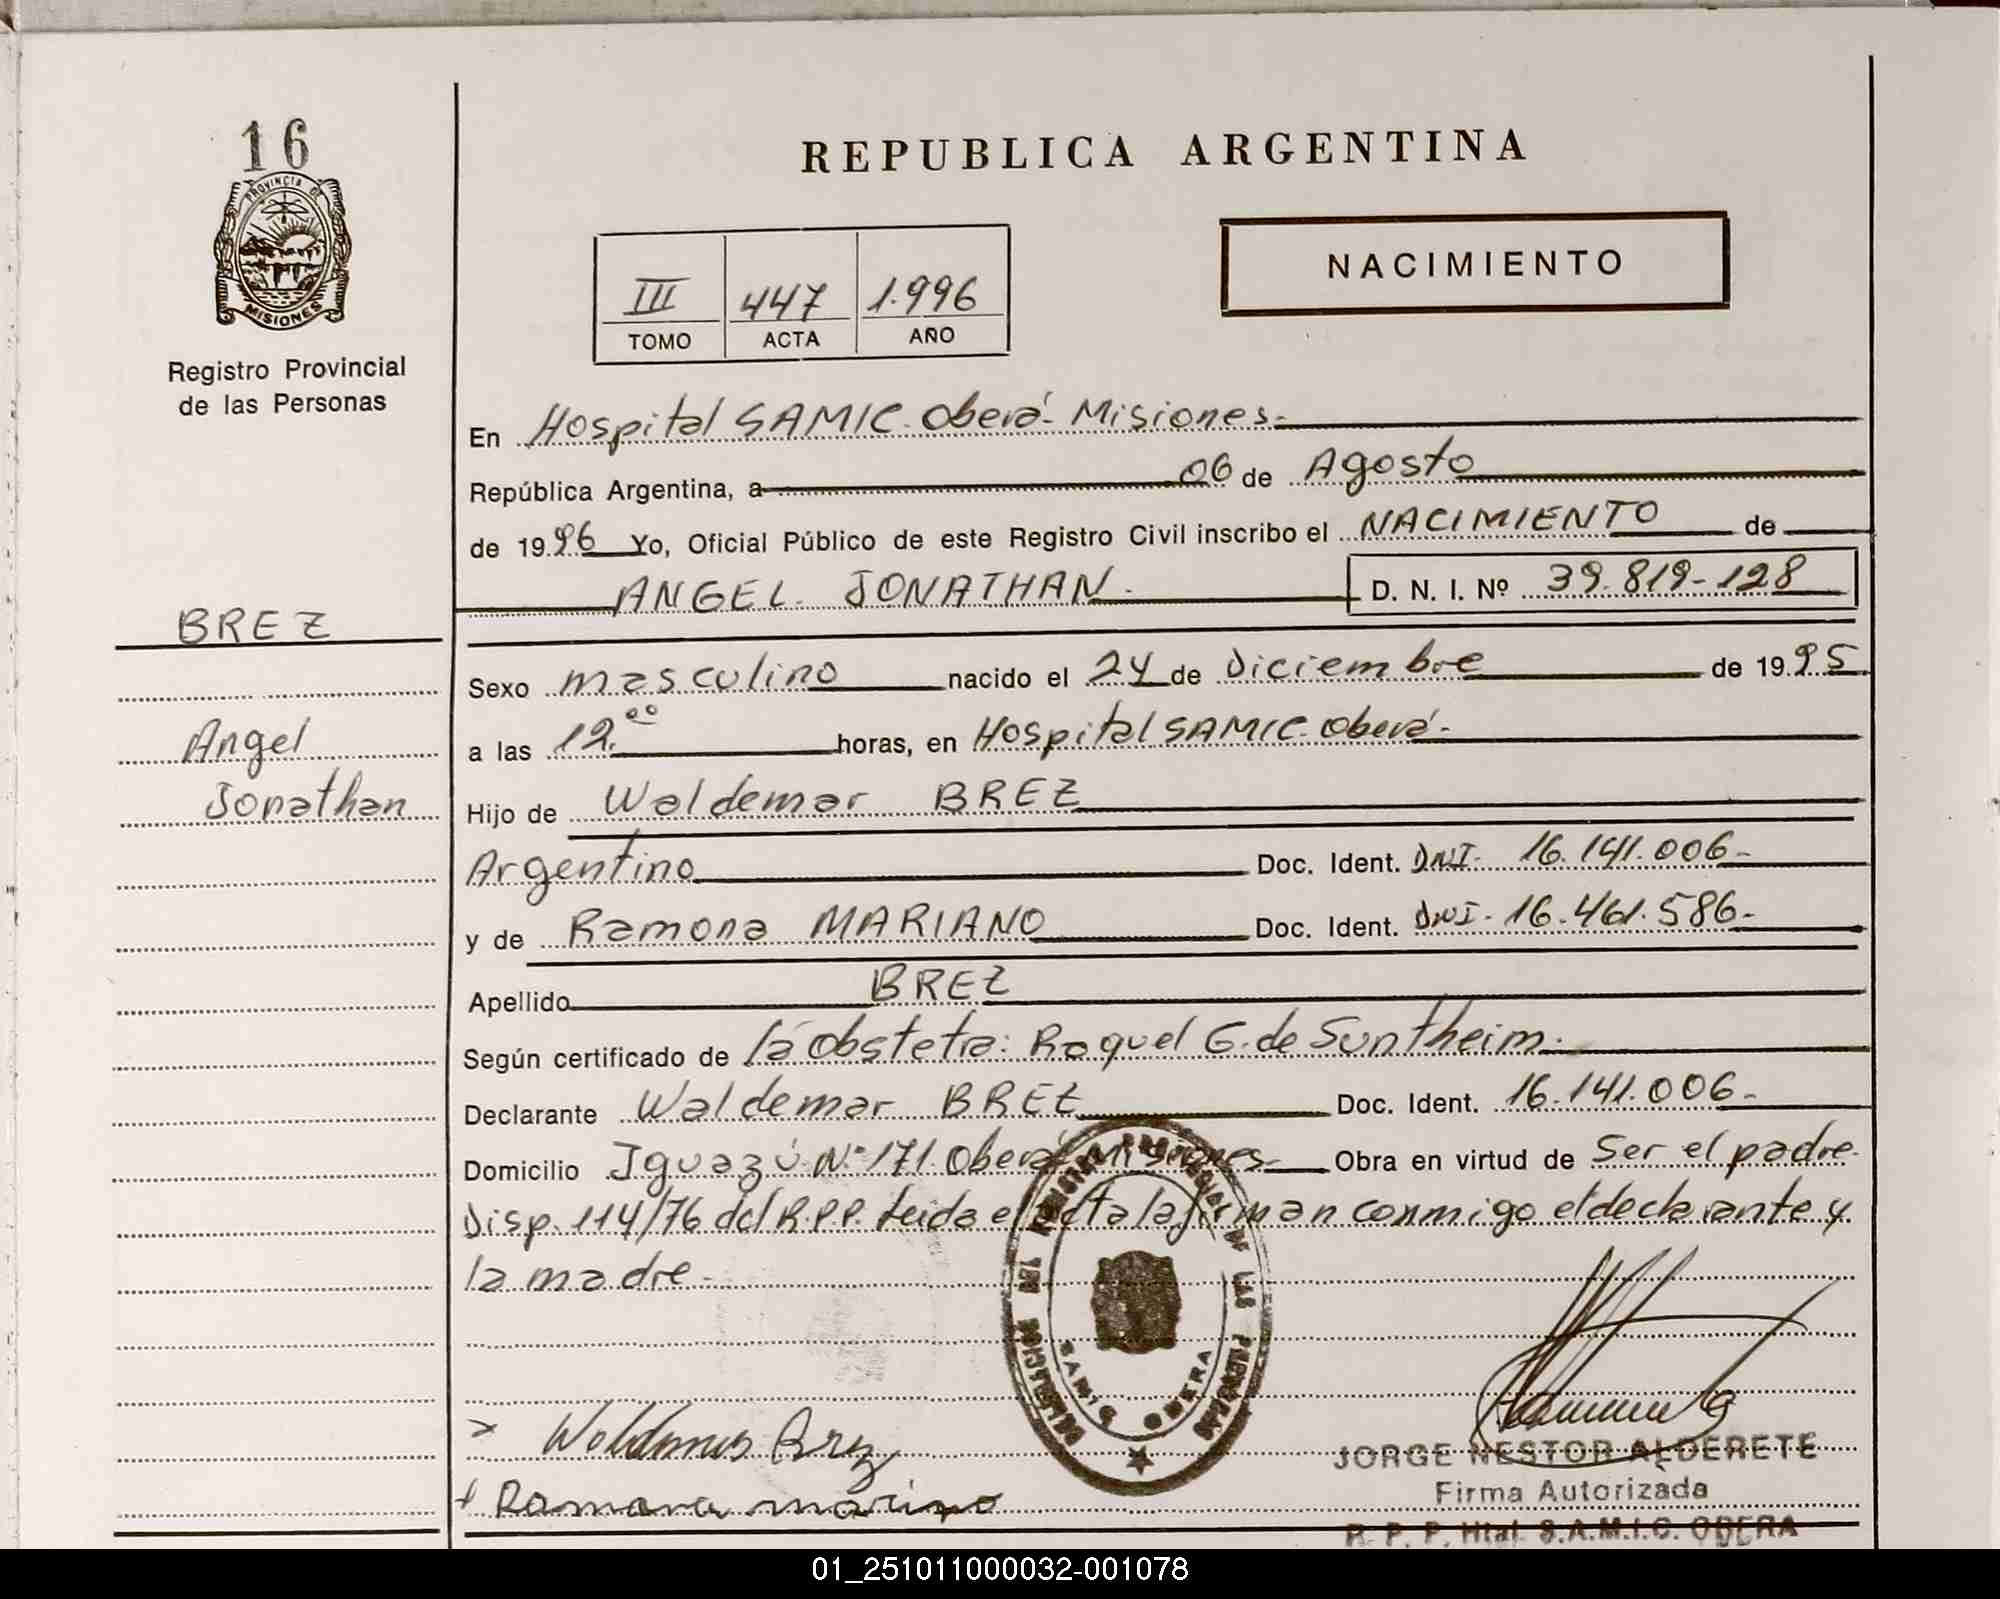 16
PROVINCIA DE
MISIONES
Registro Provincial
de las Personas
REPUBLICA ARGENTINA
III 447 1.996
TOMO ACTA AÑO
NACIMIENTO
En Hospital SAMIC. Oberá- Misiones-
República Argentina, a 06 de Agosto
de 1996 Yo, Oficial Público de este Registro Civil inscribo el NACIMIENTO de
ANGEL JONATHAN. D. N. I. Nº 39.819-128
BREZ
Angel
Jonathan
Sexo masculino nacido el 24 de Diciembre de 1995
a las 12.00 horas, en Hospital SAMIC. Oberá-
Hijo de Waldemar BREZ
Argentino Doc. Ident. DNI- 16.141.006-
y de Ramona MARIANO Doc. Ident. DNI- 16.461.586-
Apellido BREZ
Según certificado de la Obstetra: Raquel G. de Suntheim.
Declarante Waldemar BREZ Doc. Ident. 16.141.006-
Domicilio Iguazú Nº 171. Oberá Misiones- Obra en virtud de Ser el padre-
Disp. 114/76 del R.P.P. Leida el acta la firman conmigo el declarante y
la madre-
LAS PERSONAS
OBERA
Waldemar Brez
Ramona mariano
JORGE NESTOR ALDERETE
Firma Autorizada
R. P. P. Htal. S.A.M.I.C. OBERA
01_251011000032-001078